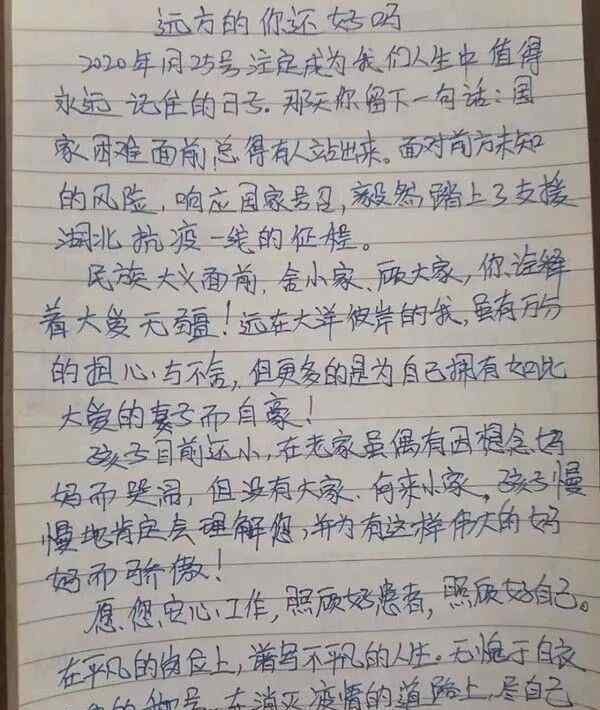 远方的你还好吗
2020年1月25号注定成为我们人生中值得
永远记住的日子。那天你留下一句话：国
家困难面前,总得有人站出来。面对前方未知
的风险,响应国家号召,毅然踏上了支援
湖北抗疫一线的征程。
民族大义面前,舍小家、顾大家,你诠释
着大爱无疆！远在大洋彼岸的我,虽有万分
的担心与不舍,但更多的是为自己拥有如此
大爱的妻子而自豪！
孩子目前还小,在老家虽偶有因想念妈
妈而哭闹,但没有大家、何来小家。孩子慢
慢地肯定会理解您,并为有这样伟大的妈
妈而骄傲！
愿您安心工作,照顾好患者,照顾好自己。
在平凡的岗位上,谱写不平凡的人生。无愧于白衣
在消灭疫情的道路上,尽自己